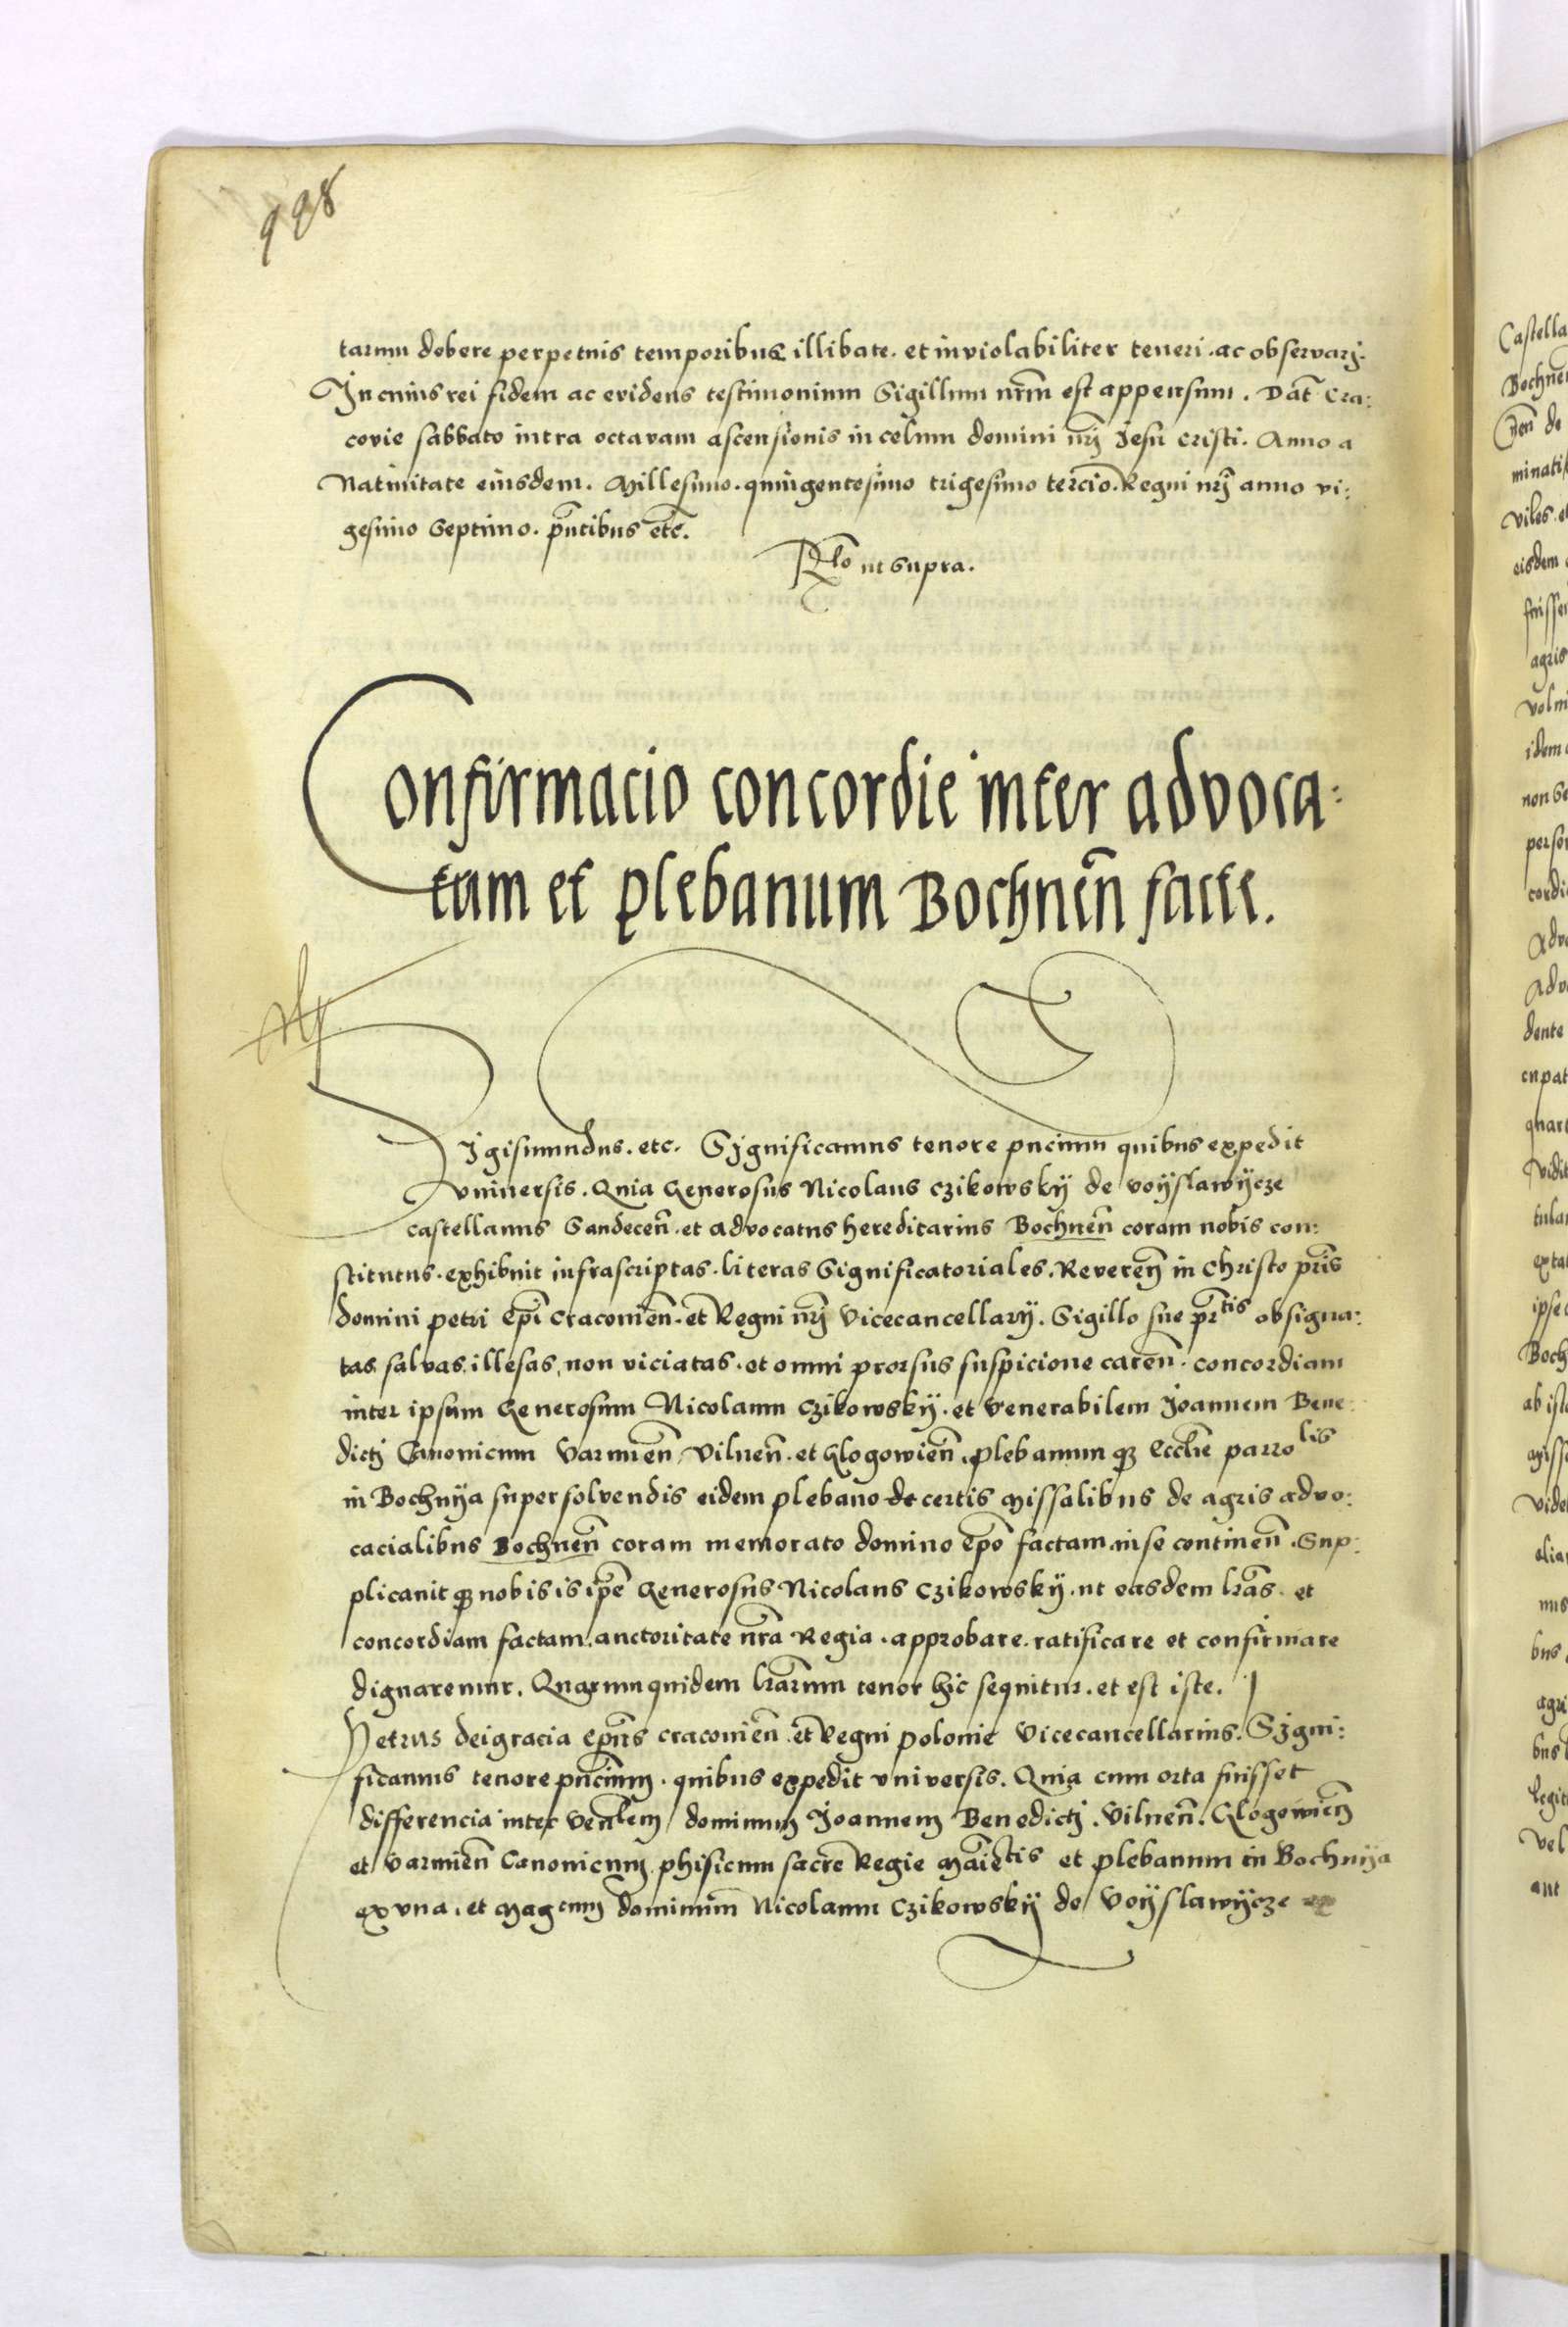 998
tarum debere perpetuis temporibus illibate. et inviolabiliter teneri. ac observari.
In cuius rei fidem ac evidens testimonium Sigillum nr̄m est appensum. Dat̄ Cra:
covie sabbato intra octavam ascensionis in celum domini nr̄j Jesu cristi. Anno a
Nativitate eiusdem. Millesimo. quingentesimo trigesimo tercio. Regni nr̄j anno vi:
gesimo Septimo. pn̄tibus etc̄.
Rlo ut supra.
Confirmacio concordie inter advoca:
tum et plebanum Bochnen̄ facte.
Sigismundus. etc. Significamus tenore pn̄cium quibus expedit
vniuersis. Quia Generosus Nicolaus Czikowskÿ de voÿslawÿcze
castellanus Sandecen̄. et advocatus hereditarius Bochnen̄ coram nobis con:
stitutus. exhibuit infrascriptas. literas Significatoriales. Reveren̄ in Christo pr̄is
domini petri ep̄i Cracovien̄. et Regni nr̄j Vicecancellarÿ. Sigillo sue pr̄tis obsigna:
tas salvas, illesas, non viciatas. et omni prorsus suspicione caren̄. concordiam
inter ipsum Generosum Nicolaum Czikowskÿ. et venerabilem Joannem Bene:
dictj Canonicum Varmien̄ Vilnen̄. et Glogowien̄. plebanum qꝫ Ecclīe parrolis
in Bochnÿa super solvendis eidem plebano de certis missalibus de agris advo:
cacialibus Bochnen̄ coram memorato domino ep̄o factam. in se continen̄. Sup:
plicauit qꝫ nobis is ip̄e Generosus Nicolaus Czikowskÿ. ut easdem lr̄as. et
concordiam factam. auctoritate nr̄a Regia. approbare. ratificare et confirmare
dignaremur. Quarum quidem lr̄arum tenor hic sequitur. et est iste.
Petrus dei gracia ep̄us cracovien̄. et Regni polonie Vicecancellarius. Signi:
ficamus tenore pn̄cium. quibus expedit vniversis. Quia cum orta fuisset
differencia inter ven̄lem dominum Joannem Benedictj. Vilnen̄. Glogowien̄
et Varmien̄ Canonicum phisicum sacre Regie Māietis et plebanum in Bochnÿa
ex vna. et Mag cum dominum Nicolaum Czikowskÿ de Voÿslawÿcze ex
Castella
Bochnen̄
nen̄ de
minatis
viles. et
eisdem
fuisse
agris
volu
idem
non se
perso
cordi
Adv
Adv
dente
cupat
quart
vidit
tula
exta
ipse
Boch
ab ist
miss
vide
alia
mis
bus
agri
bus
legit
vel
aut